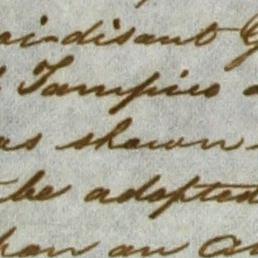 soi-disant G
Tampico
as shown
be adopted
than an